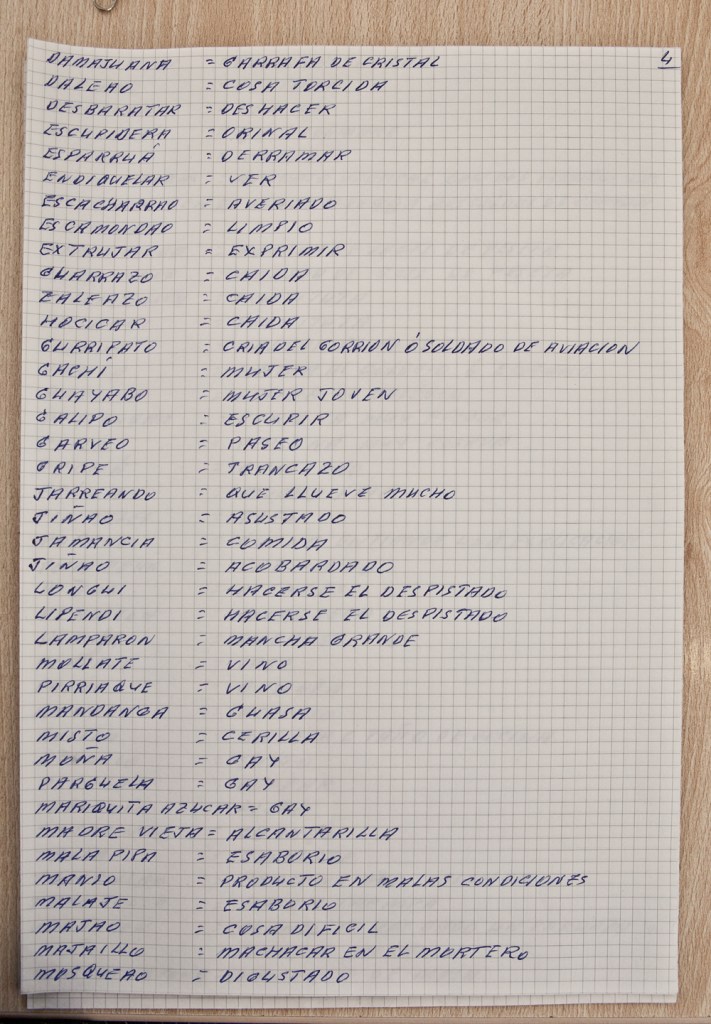 4
DAMAJUANA = GARRAFA DE CRISTAL
DALEAO = COSA TORCIDA
DESBARATAR = DESHACER
ESCUPIDERA = ORINAL
ESPARRUÁ = DERRAMAR
ENDIQUELAR = VER
ESCACHARRAO = AVERIADO
ESCAMONDAO = LIMPIO
EXTRUJAR = EXPRIMIR
GUARRAZO = CAIDA
ZALEAZO = CAIDA
HOCICAR = CAIDA
GURRIPATO = CRIA DEL GORRION Ó SOLDADO DE AVIACION
GACHÍ = MUJER
GUAYABO = MUJER JOVEN
GALIPO = ESCUPIR
GARVEO = PASEO
GRIPE = TRANCAZO
JARREANDO = QUE LLUEVE MUCHO
JIÑAO = ASUSTADO
JAMANCIA = COMIDA
JIÑAO = ACOBARDADO
LONGUI = HACERSE EL DESPISTADO
LIPENDI = HACERSE EL DESPISTADO
LAMPARON = MANCHA GRANDE
MOLLATE = VINO
PIRRIAQUE = VINO
MANDANGA = GUASA
MISTO = CERILLA
MOÑA = GAY
PARGUELA = GAY
MARIQUITA AZUCAR = GAY
MADRE VIEJA = ALCANTARILLA
MALA PIPA = ESABORIO
MANIO = PRODUCTO EN MALAS CONDICIONES
MALAJE = ESABORIO
MAJAO = COSA DIFICIL
MAJAILLO = MACHACAR EN EL MORTERO
MOSQUEAO = DIGUSTADO